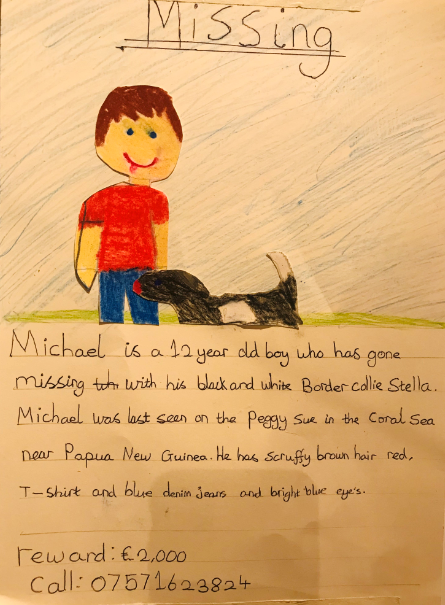 Missing
Michael is a 12 year old boy who has gone
missing with his black and white Border collie Stella.
Michael was last seen on the Peggy Sue in the Coral Sea
near Papua New Guinea. He has scruffy brown hair red,
T-shirt and blue denim jeans and bright blue eye's.
reward: €2,000
Call: 07571623824